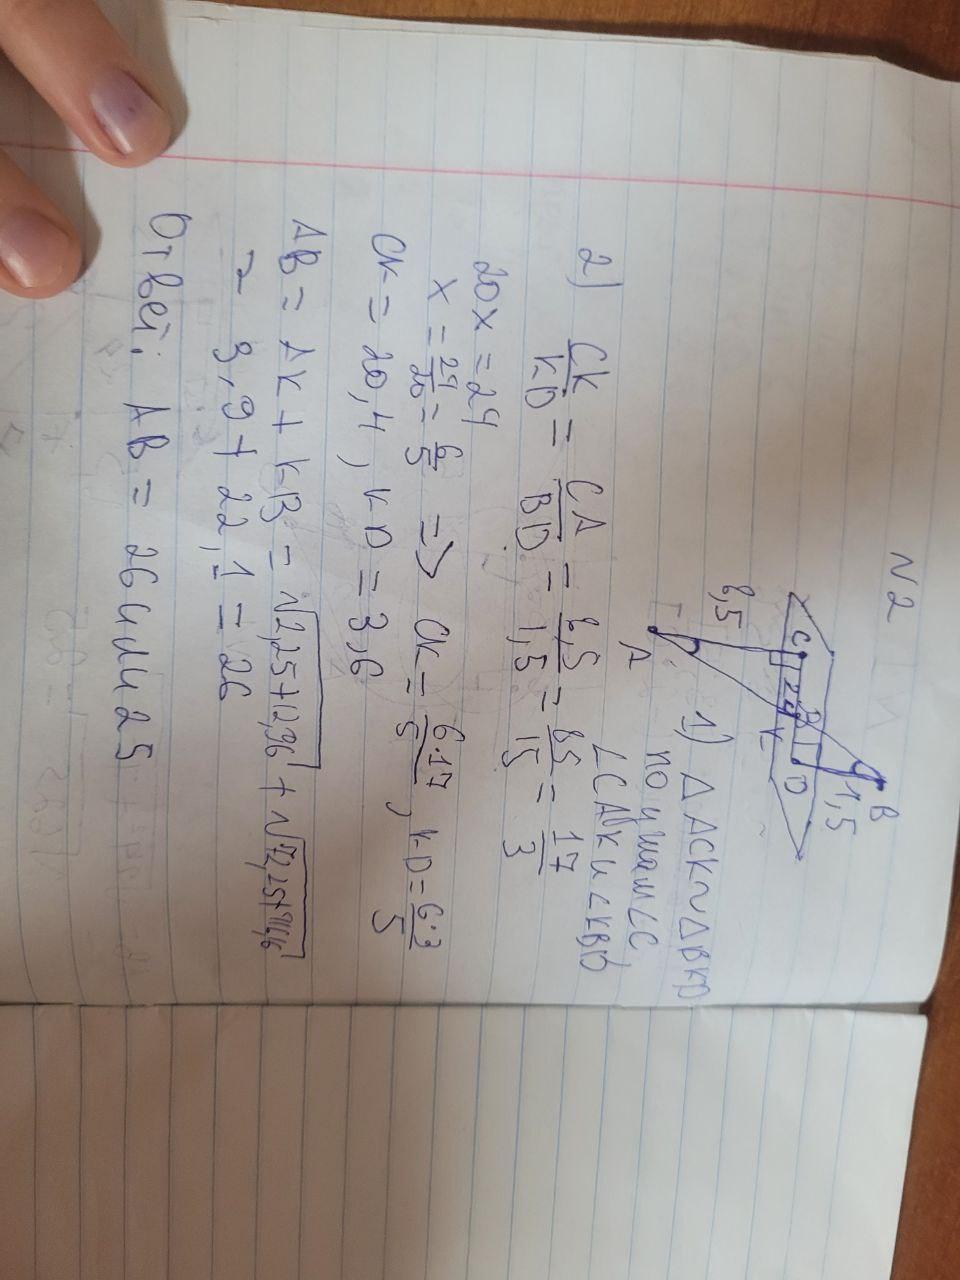 N2
B
1,5
C
24
D
K
8,5
A
1) Δ ACK ~ Δ BKD
по углам ∠C,
∠CAK и ∠KBD
2) CK/KD = CA/BD = 8,5/1,5 = 85/15 = 17/3
20x = 24
x = 24/20 = 6/5 => CK = 6·17/5, KD = 6·3/5
CK = 20,4, KD = 3,6
AB = AK + KB = √2,25+12,96 +
~ 3,9 + 22,1 = 26
Ответ: AB = 26 или 25